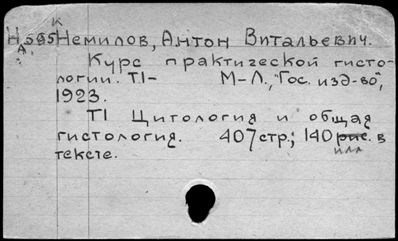 К
Н 595 Немилов, Антон Витальевич.
А.
Курс практической гисто-
логии. TI- М-Л., "Гос. изд-во",
1923.
TI Цитология и общая
гистология. 407стр.; 140 рис. в
илл
тексте.